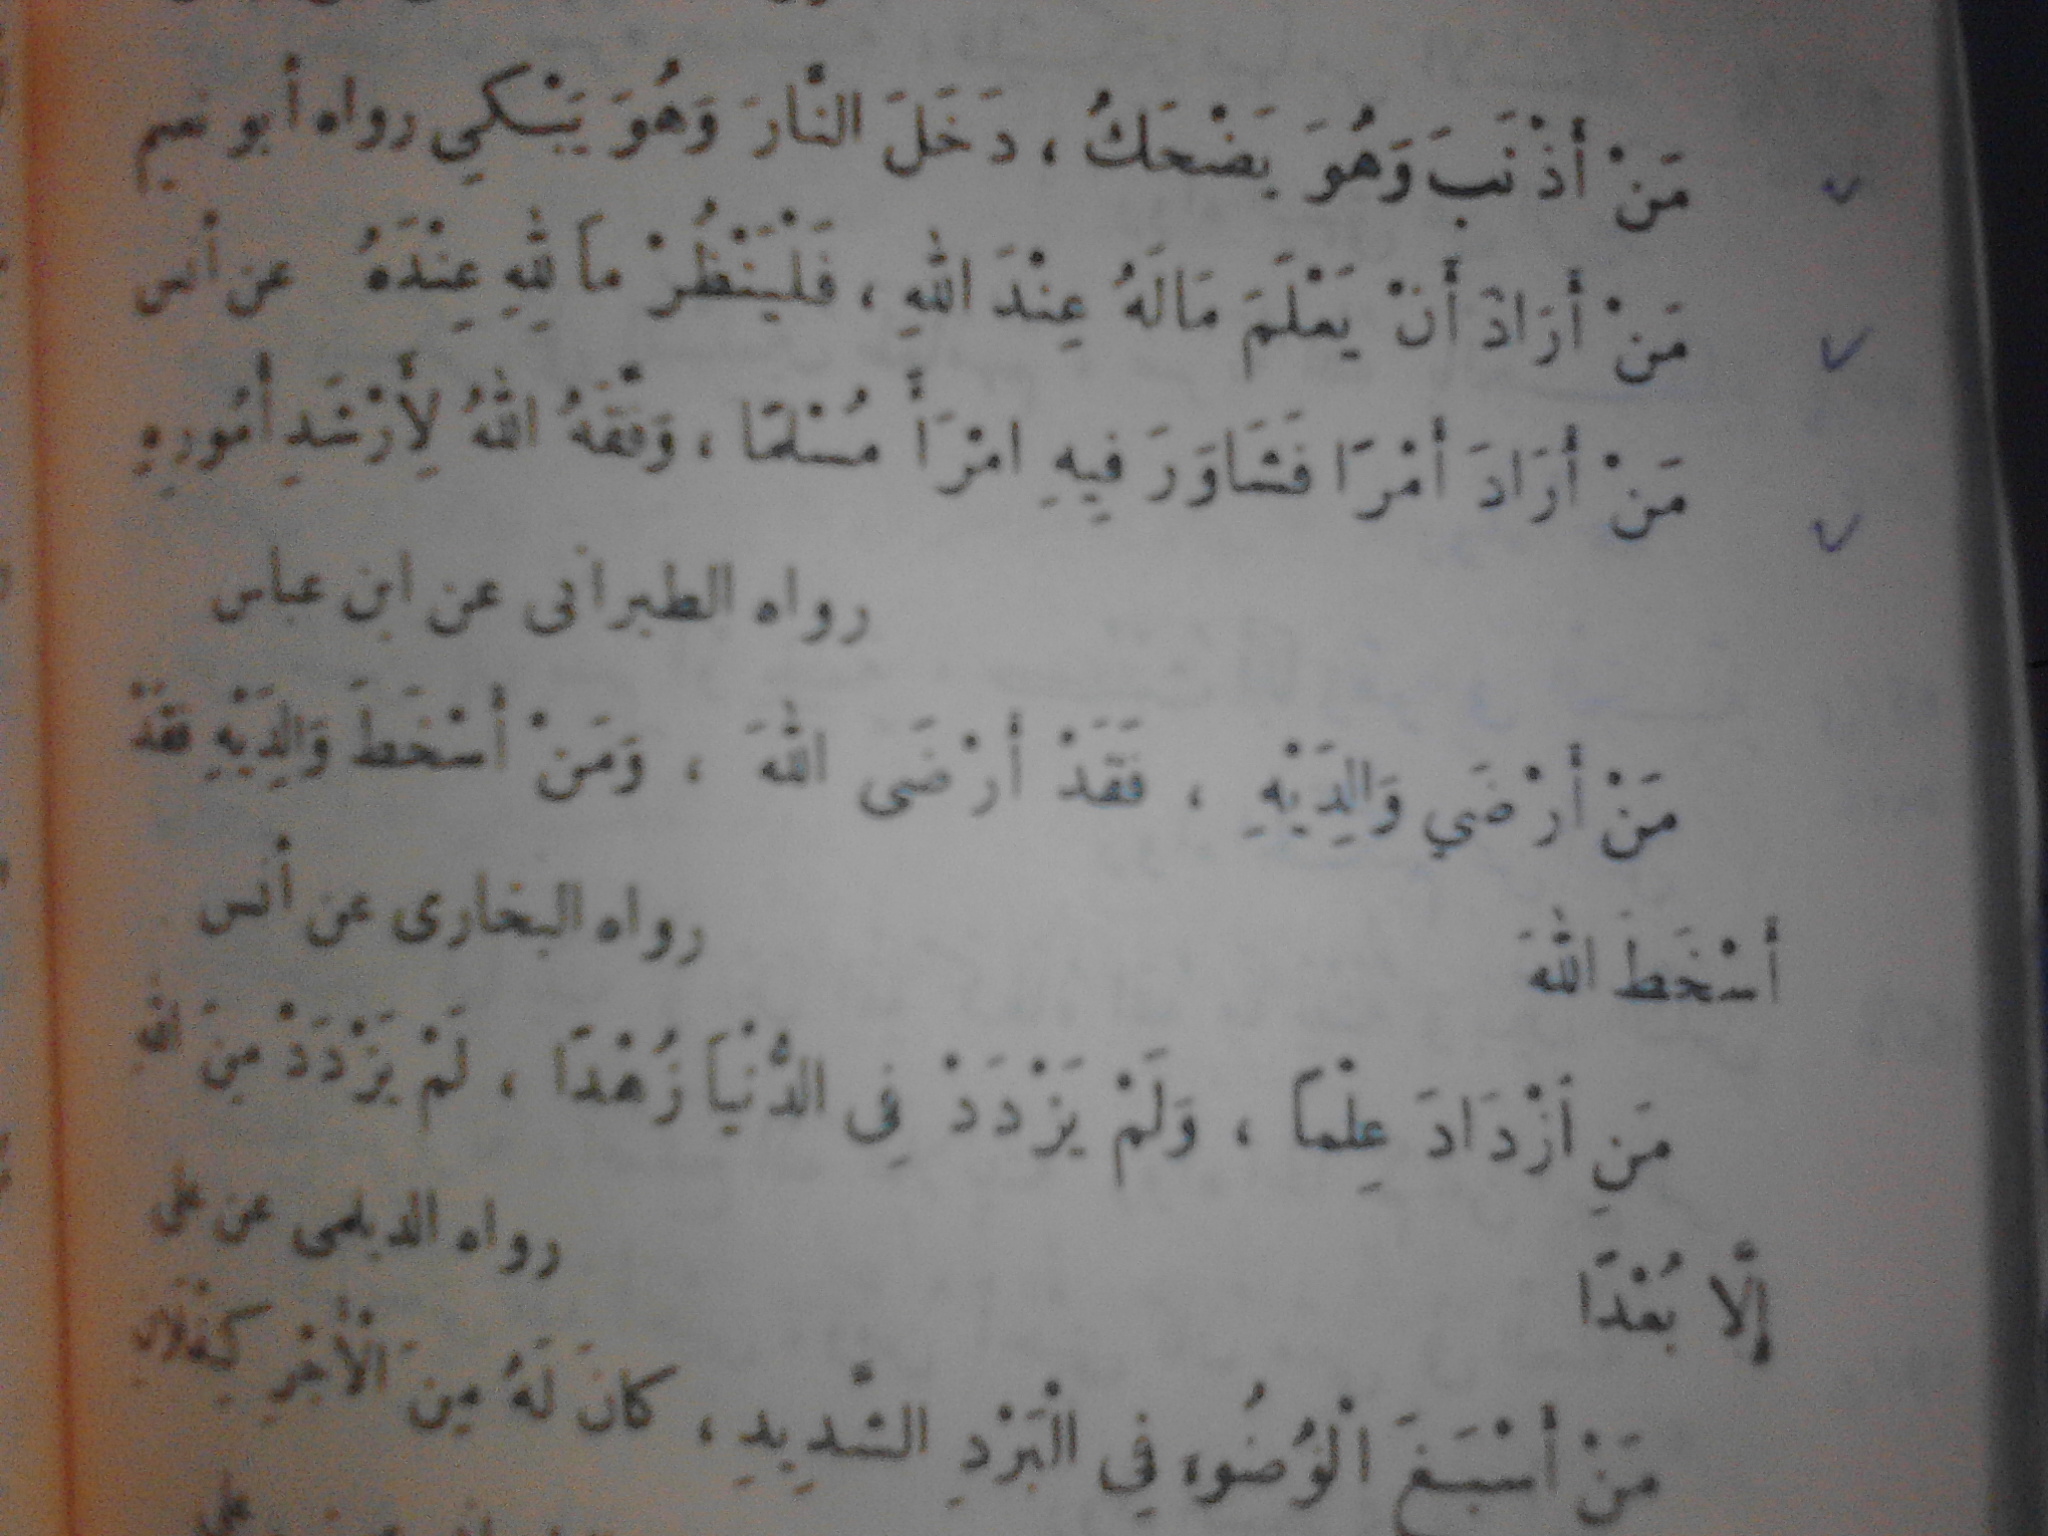 مَنْ أَذْنَبَ وَهُوَ يَضْحَكُ ، دَخَلَ النَّارَ وَهُوَ يَبْكي رواه أبو نعيم
مَنْ أَرَادَ أَنْ يَعْلَمَ مَالَهُ عِنْدَ اللهِ ، فَلْيَنْظُرْ مَا لِلهِ عِنْدَهُ عن أنس
مَنْ أَرَادَ أَمْرًا فَشَاوَرَ فِيهِ امْرَأً مُسْلمًا ، وَفَّقَهُ اللهُ لِأَرْشَدِ أُمُورِهِ
رواه الطبرانى عن ابن عباس
مَنْ أَرْضَي وَالِدَيْهِ ، فَقَدْ أَرْضَى اللهَ ، وَمَنْ أَسْخَطَ وَالِدَيْهِ فَقَدْ
أَسْخَطَ اللهَ رواه البخارى عن أنس
مَنِ ازْدَادَ عِلْمًا ، وَلَمْ يَزْدَدْ فِى الدُّنْيَا زُهْدًا ، لَمْ يَزْدَدْ مِنَ اللهِ
إِلَّا بُعْدًا رواه الديلمى عن على
مَنْ أَسْبَغَ الْوُضُوءَ فِي الْبَرْدِ الشَّدِيدِ ، كَانَ لَهُ مِنَ الْأَجْرِ كِفْلَانِ